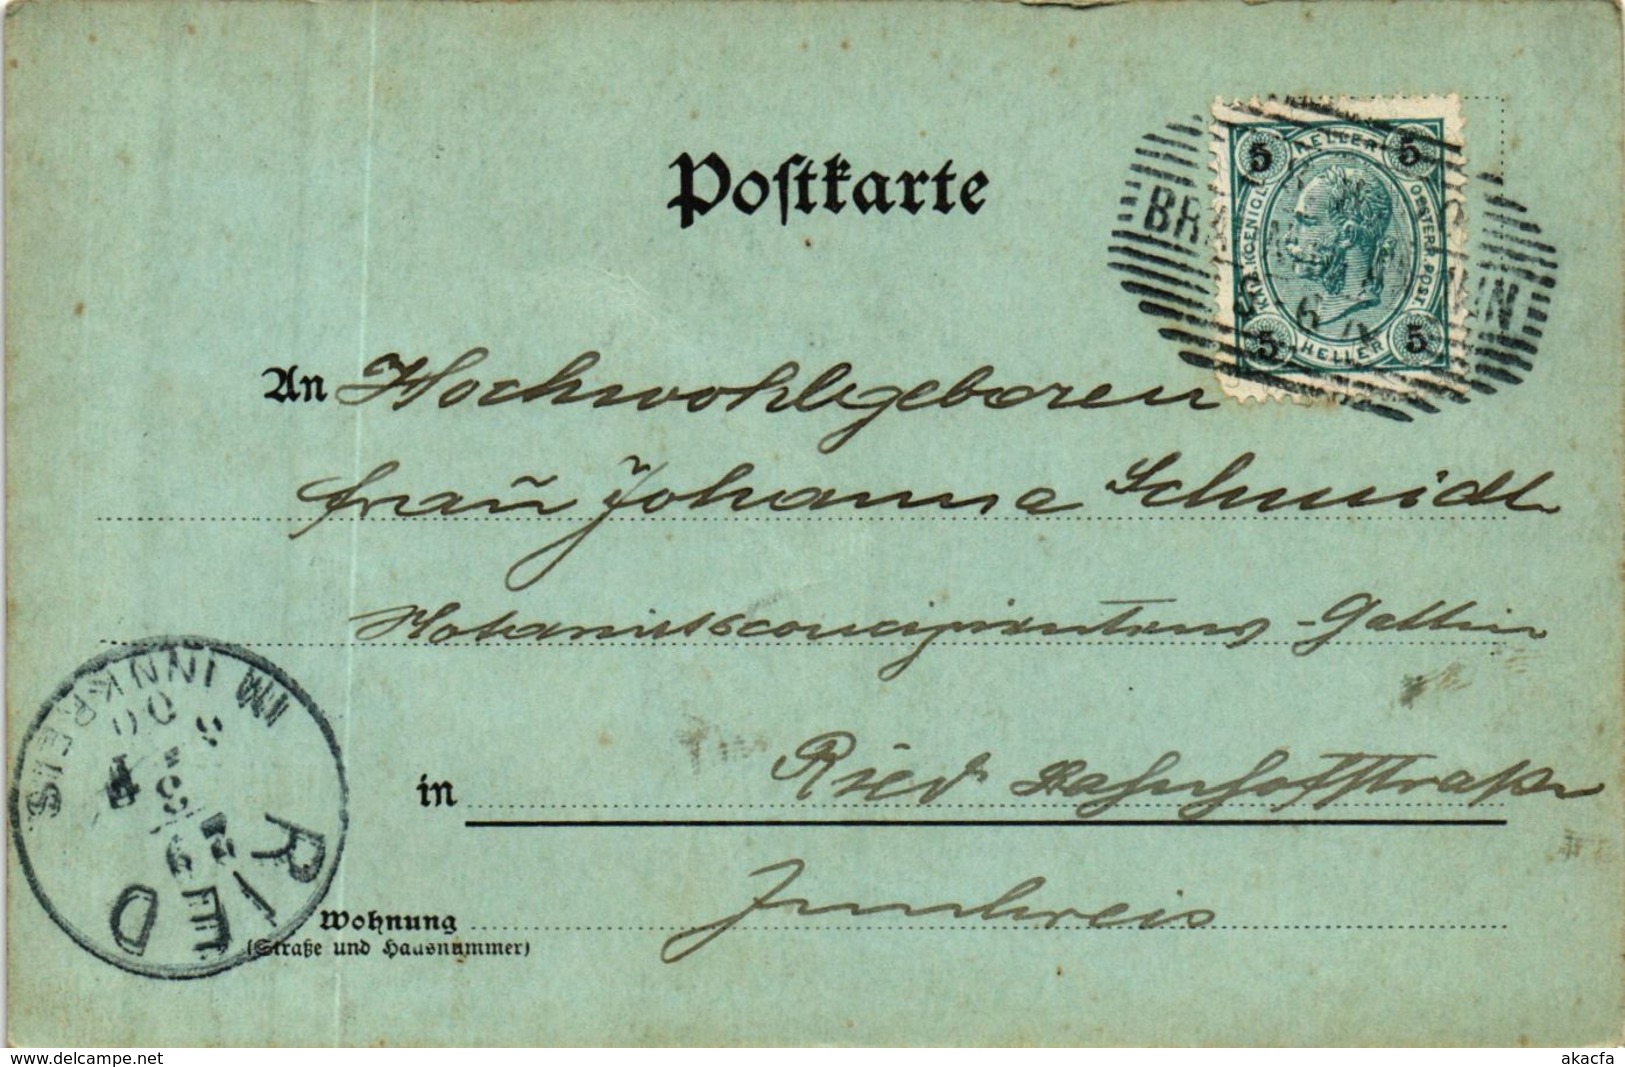 Postkarte
HELLER
5 5
KAIS. KOENIGL. OESTERR. POST.
5 5
HELLER
BRA
INN
An Hochwohlgeboren
Frau Johanna Schmidt
-Gattin
in Ried Bahnhofstraße
Innkreis
Wohnung
(Straße und Hausnummer)
RIED
IM INNKREIS
www.delcampe.net
akacfa